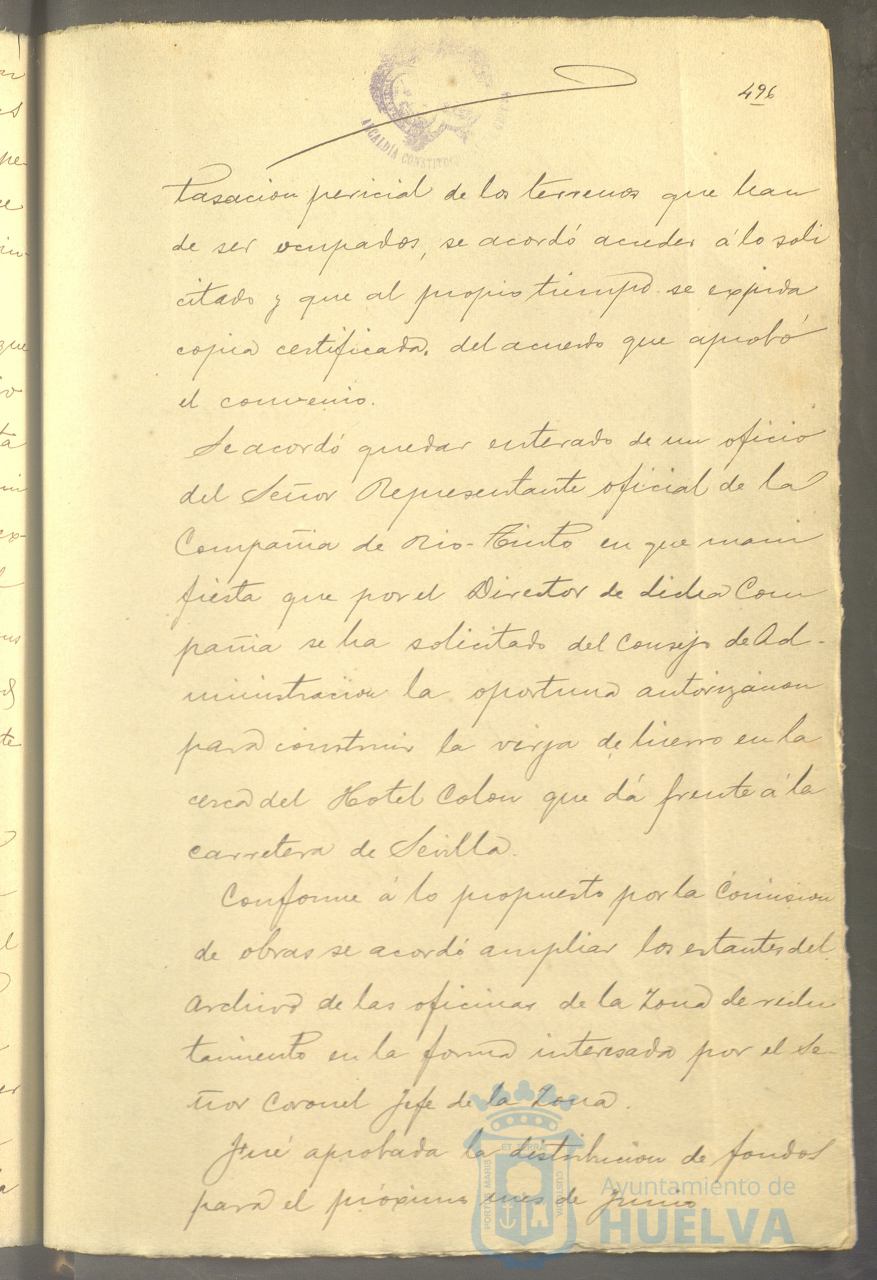 496
ALCALDÍA CONSTITUCIONAL
tasacion pericial de los terrenos que han
de ser ocupados, se acordó acceder á lo soli
citado y que al propio tiempo se expida
copia certificada, del acuerdo que aprobó
el convenio.
Se acordó quedar enterado de un oficio
del Señor Representante oficial de la
Compañia de Rio-Tinto en que mani
fiesta que por el Director de dicha Com
pañia se ha solicitado del Consejo de Ad-
ministracion la oportuna autorizacion
para construir la verja de hierro en la
cerca del Hotel Colon que dá frente á la
carretera de Sevilla.
Conforme á lo propuesto por la Comision
de obras se acordó ampliar los estantes del
Archivo de las oficinas de la Zona de reclu
tamiento en la forma interesada por el Se-
ñor Coronel Jefe de la Zona.
Fué aprobada la distribucion de fondos
para el próximo mes de Junio.
PORTUS MARIS ET TERRAE CUSTODIA
Ayuntamiento de
HUELVA